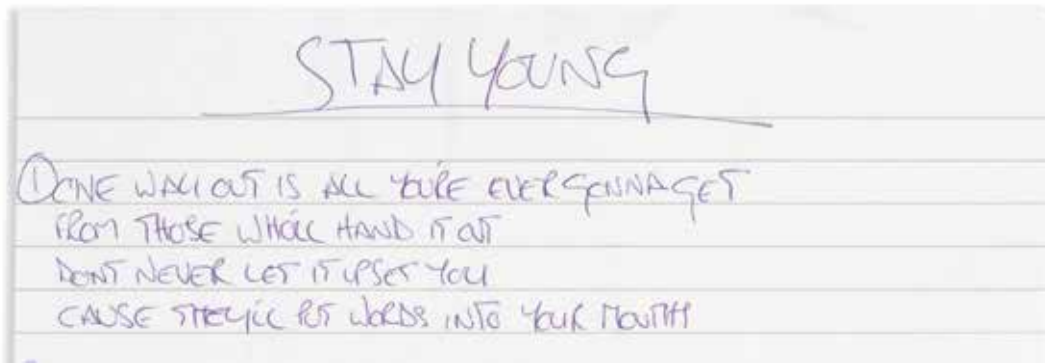 STAY YOUNG
① ONE WAY OUT IS ALL YOU'RE EVER GONNA GET
FROM THOSE WHO'LL HAND IT OUT
DONT NEVER LET IT UPSET YOU
CAUSE THEY'LL PUT WORDS INTO YOUR MOUTH